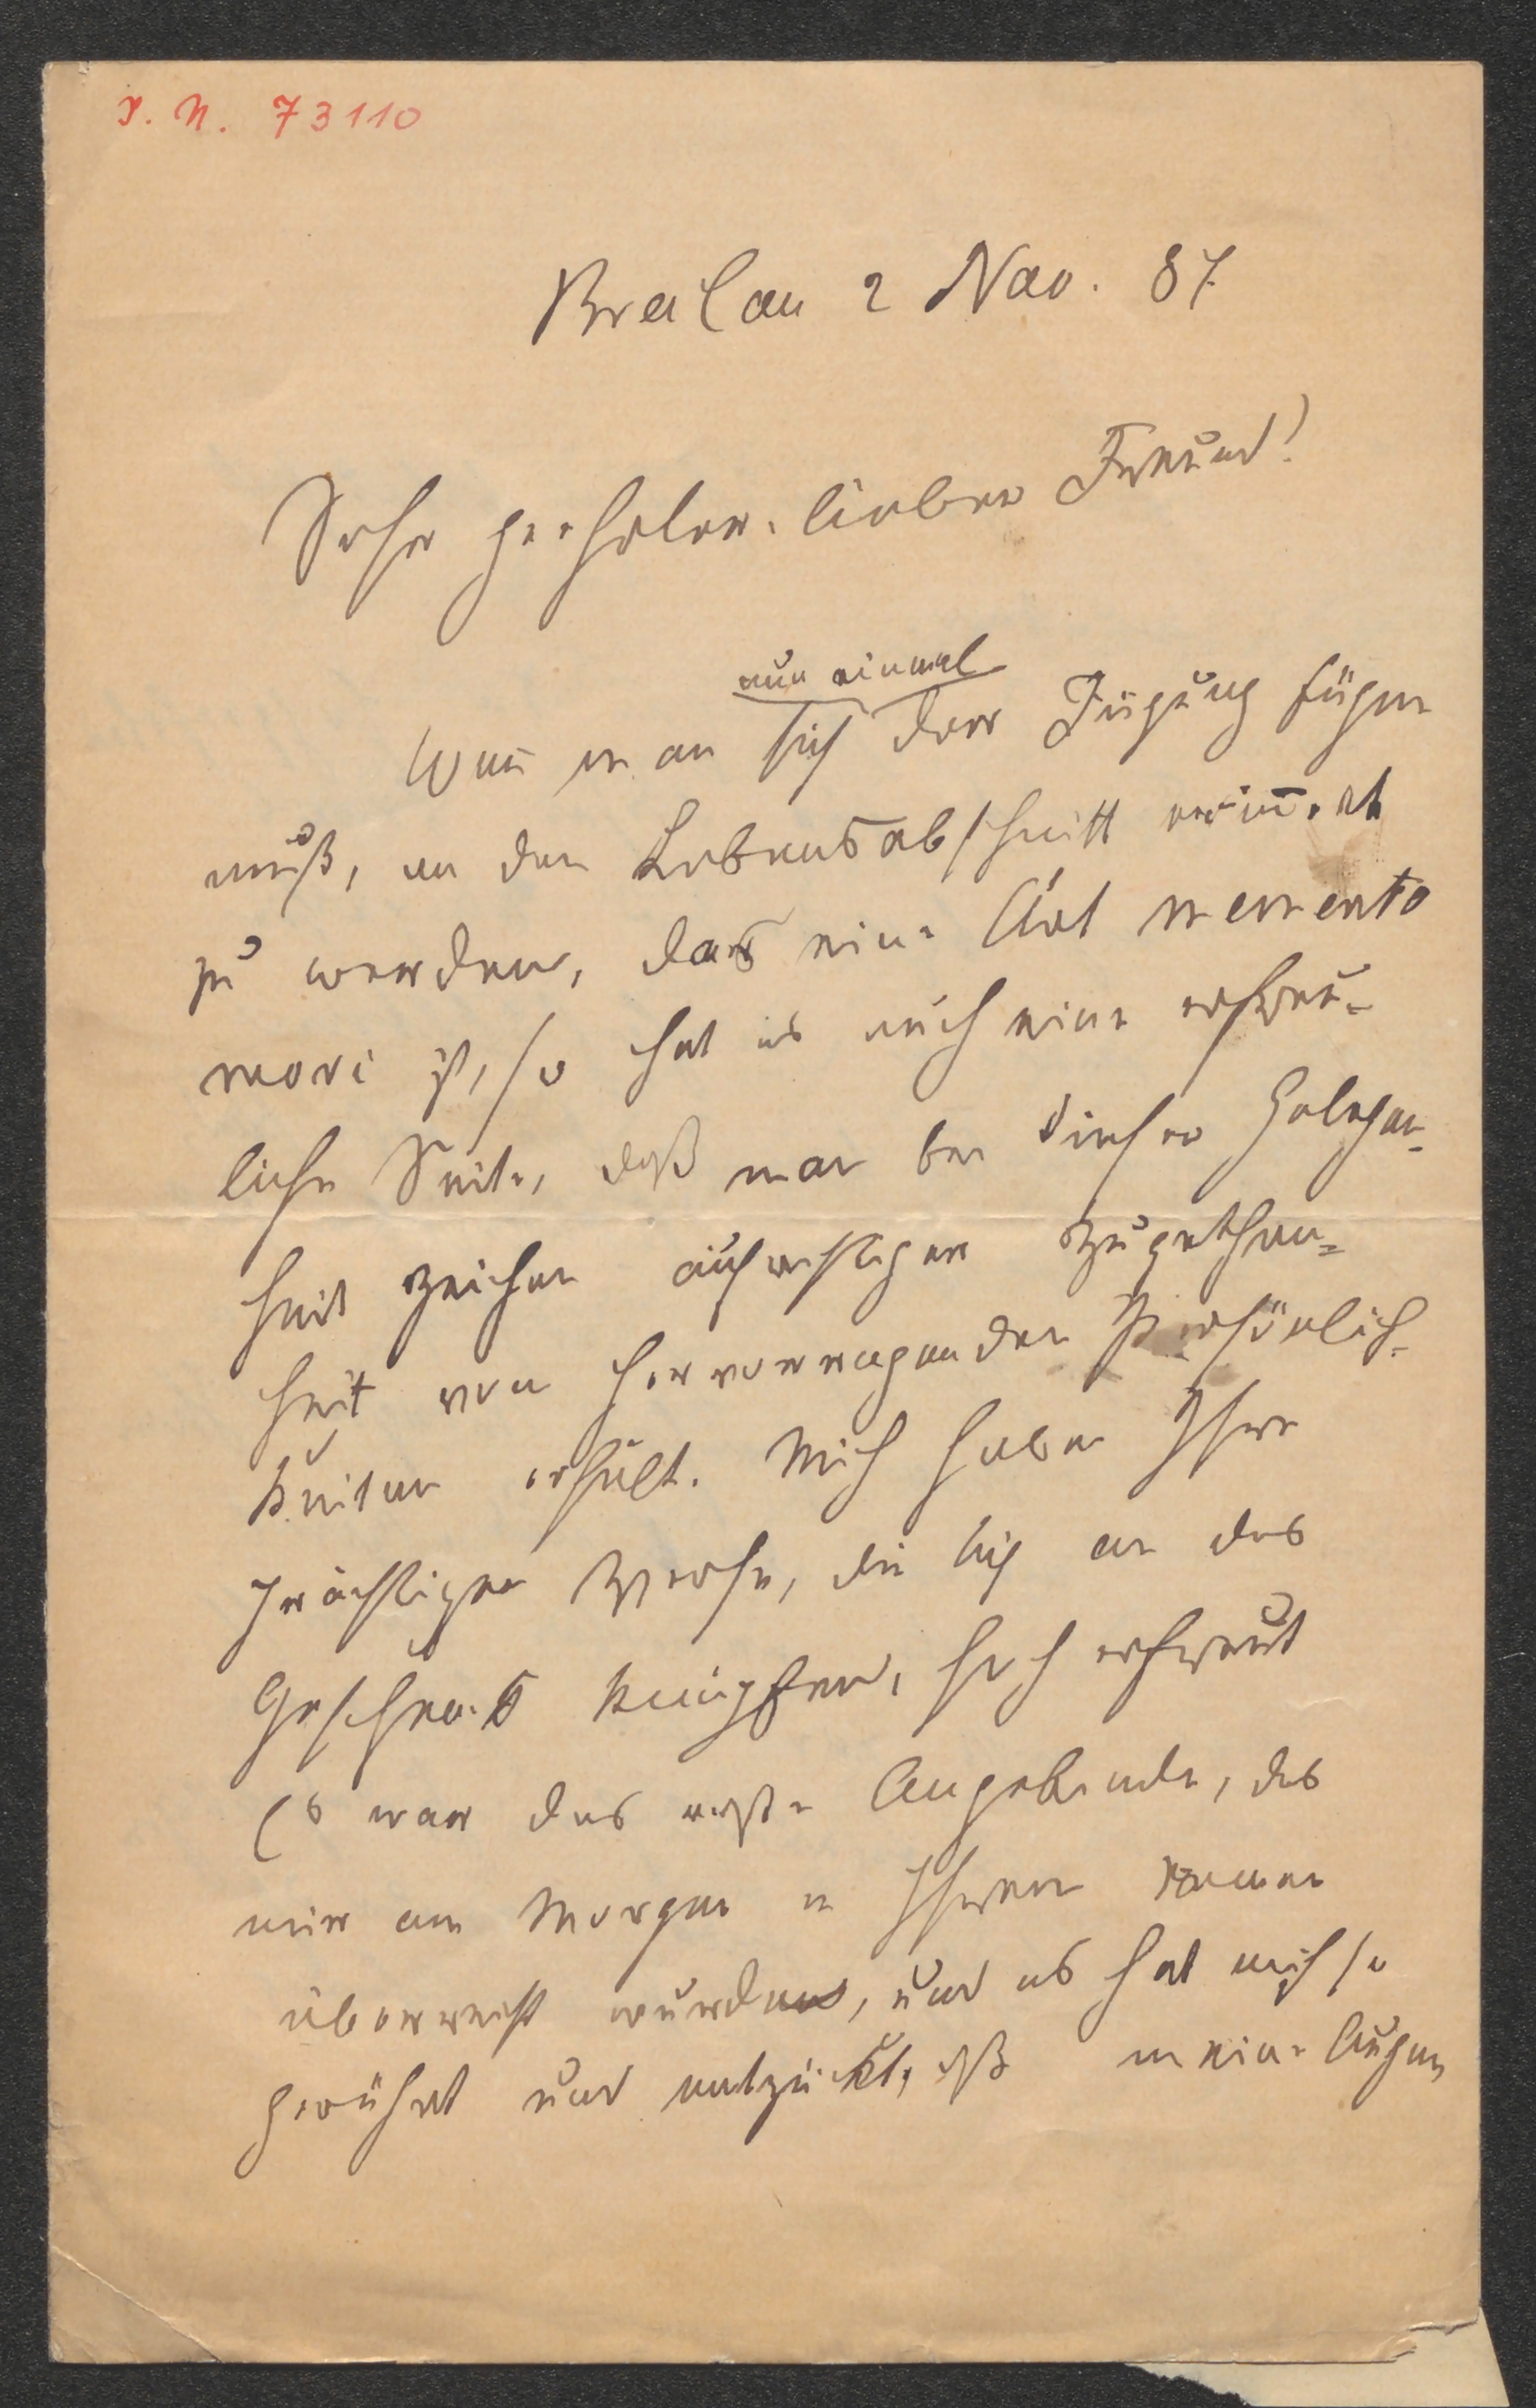 I. N. 73110
Breslau 2 Nov. 87
Sehr geehrter, lieber Freund!
nun einmal
Wenn man sich der Fügung fügen
muß, an den Lebensabschnitt erinnert
zu werden, der eine Art memento
mori ist, so hat es auch eine erfreu-
liche Seite, daß man bei dieser Gelegen-
heit Zeichen aufrichtiger Zugethan-
heit von hervorragenden Persönlich-
keiten erhält. Mich haben Ihre
prächtigen Verse, die sich an das
Geschenk knüpfen, hoch erfreut
Es war das erste Angebinde, das
mir am Morgen in Ihrem Namen
überreicht wurde, und es hat mich so
gerührt und entzückt, daß meine Augen